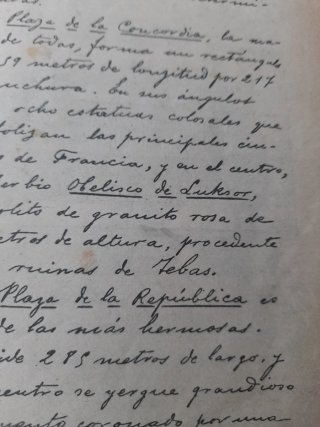 Plaza de la Concordia, la ma-
de todas, forma un rectángulo
59 metros de longitud por 217
nchura. En sus ángulos
ocho estatuas colosales que
bolizan las principales ciu-
s de Francia, y en el centro,
berbio Obelisco de Luksor,
olito de granito rosa de
etros de altura, procedente
ruinas de Tebas.
Plaza de la República es
de las más hermosas.
ide 285 metros de largo, y
centro se yergue grandioso
mento coronado por una